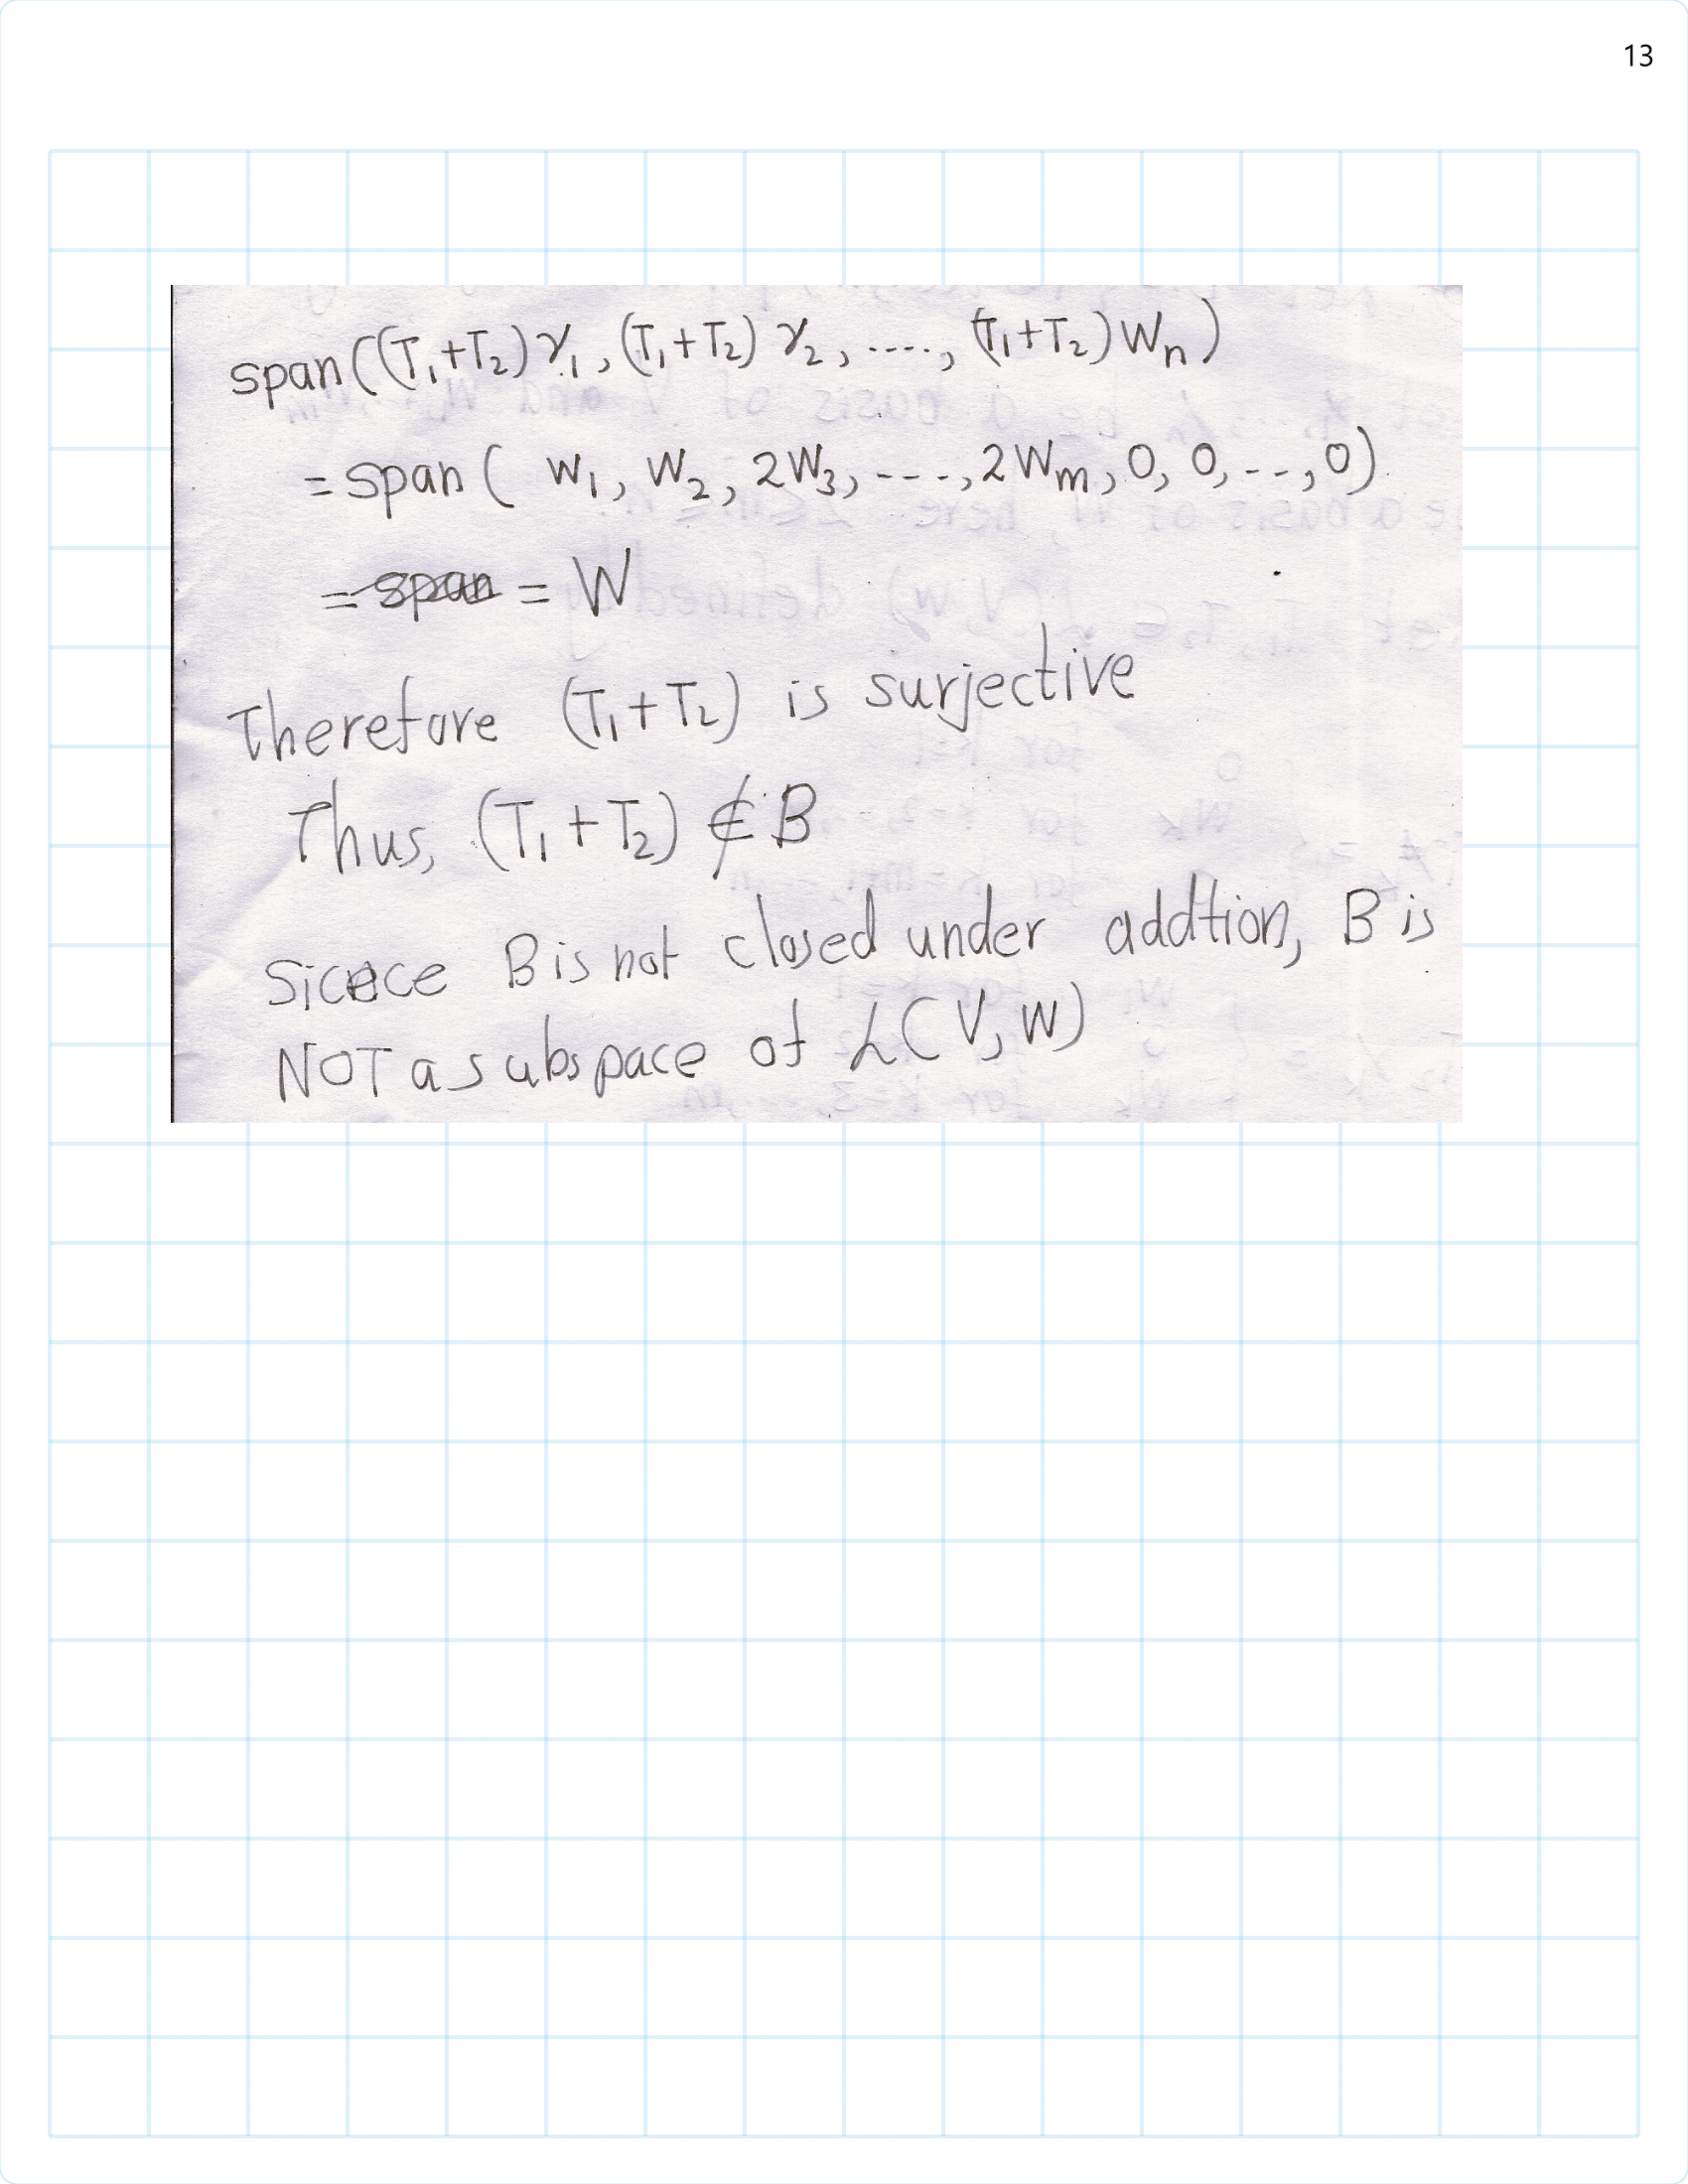 13
span((T₁+T₂)γ₁, (T₁+T₂)γ₂, ...., (T₁+T₂)Wₙ)
= span( W₁, W₂, 2W₃, ...., 2Wₘ, 0, 0, .., 0)
= span = W
Therefore (T₁+T₂) is surjective
Thus, (T₁+T₂) ∉ B
Sicnce B is not closed under addtion, B is
NOT a subspace of L(V, W)